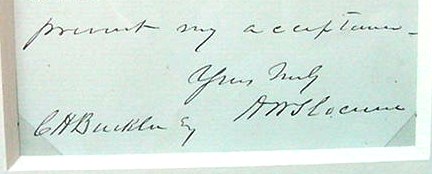 prevent my acceptance
Yours truly
C H Buckley Esq A W Slocum